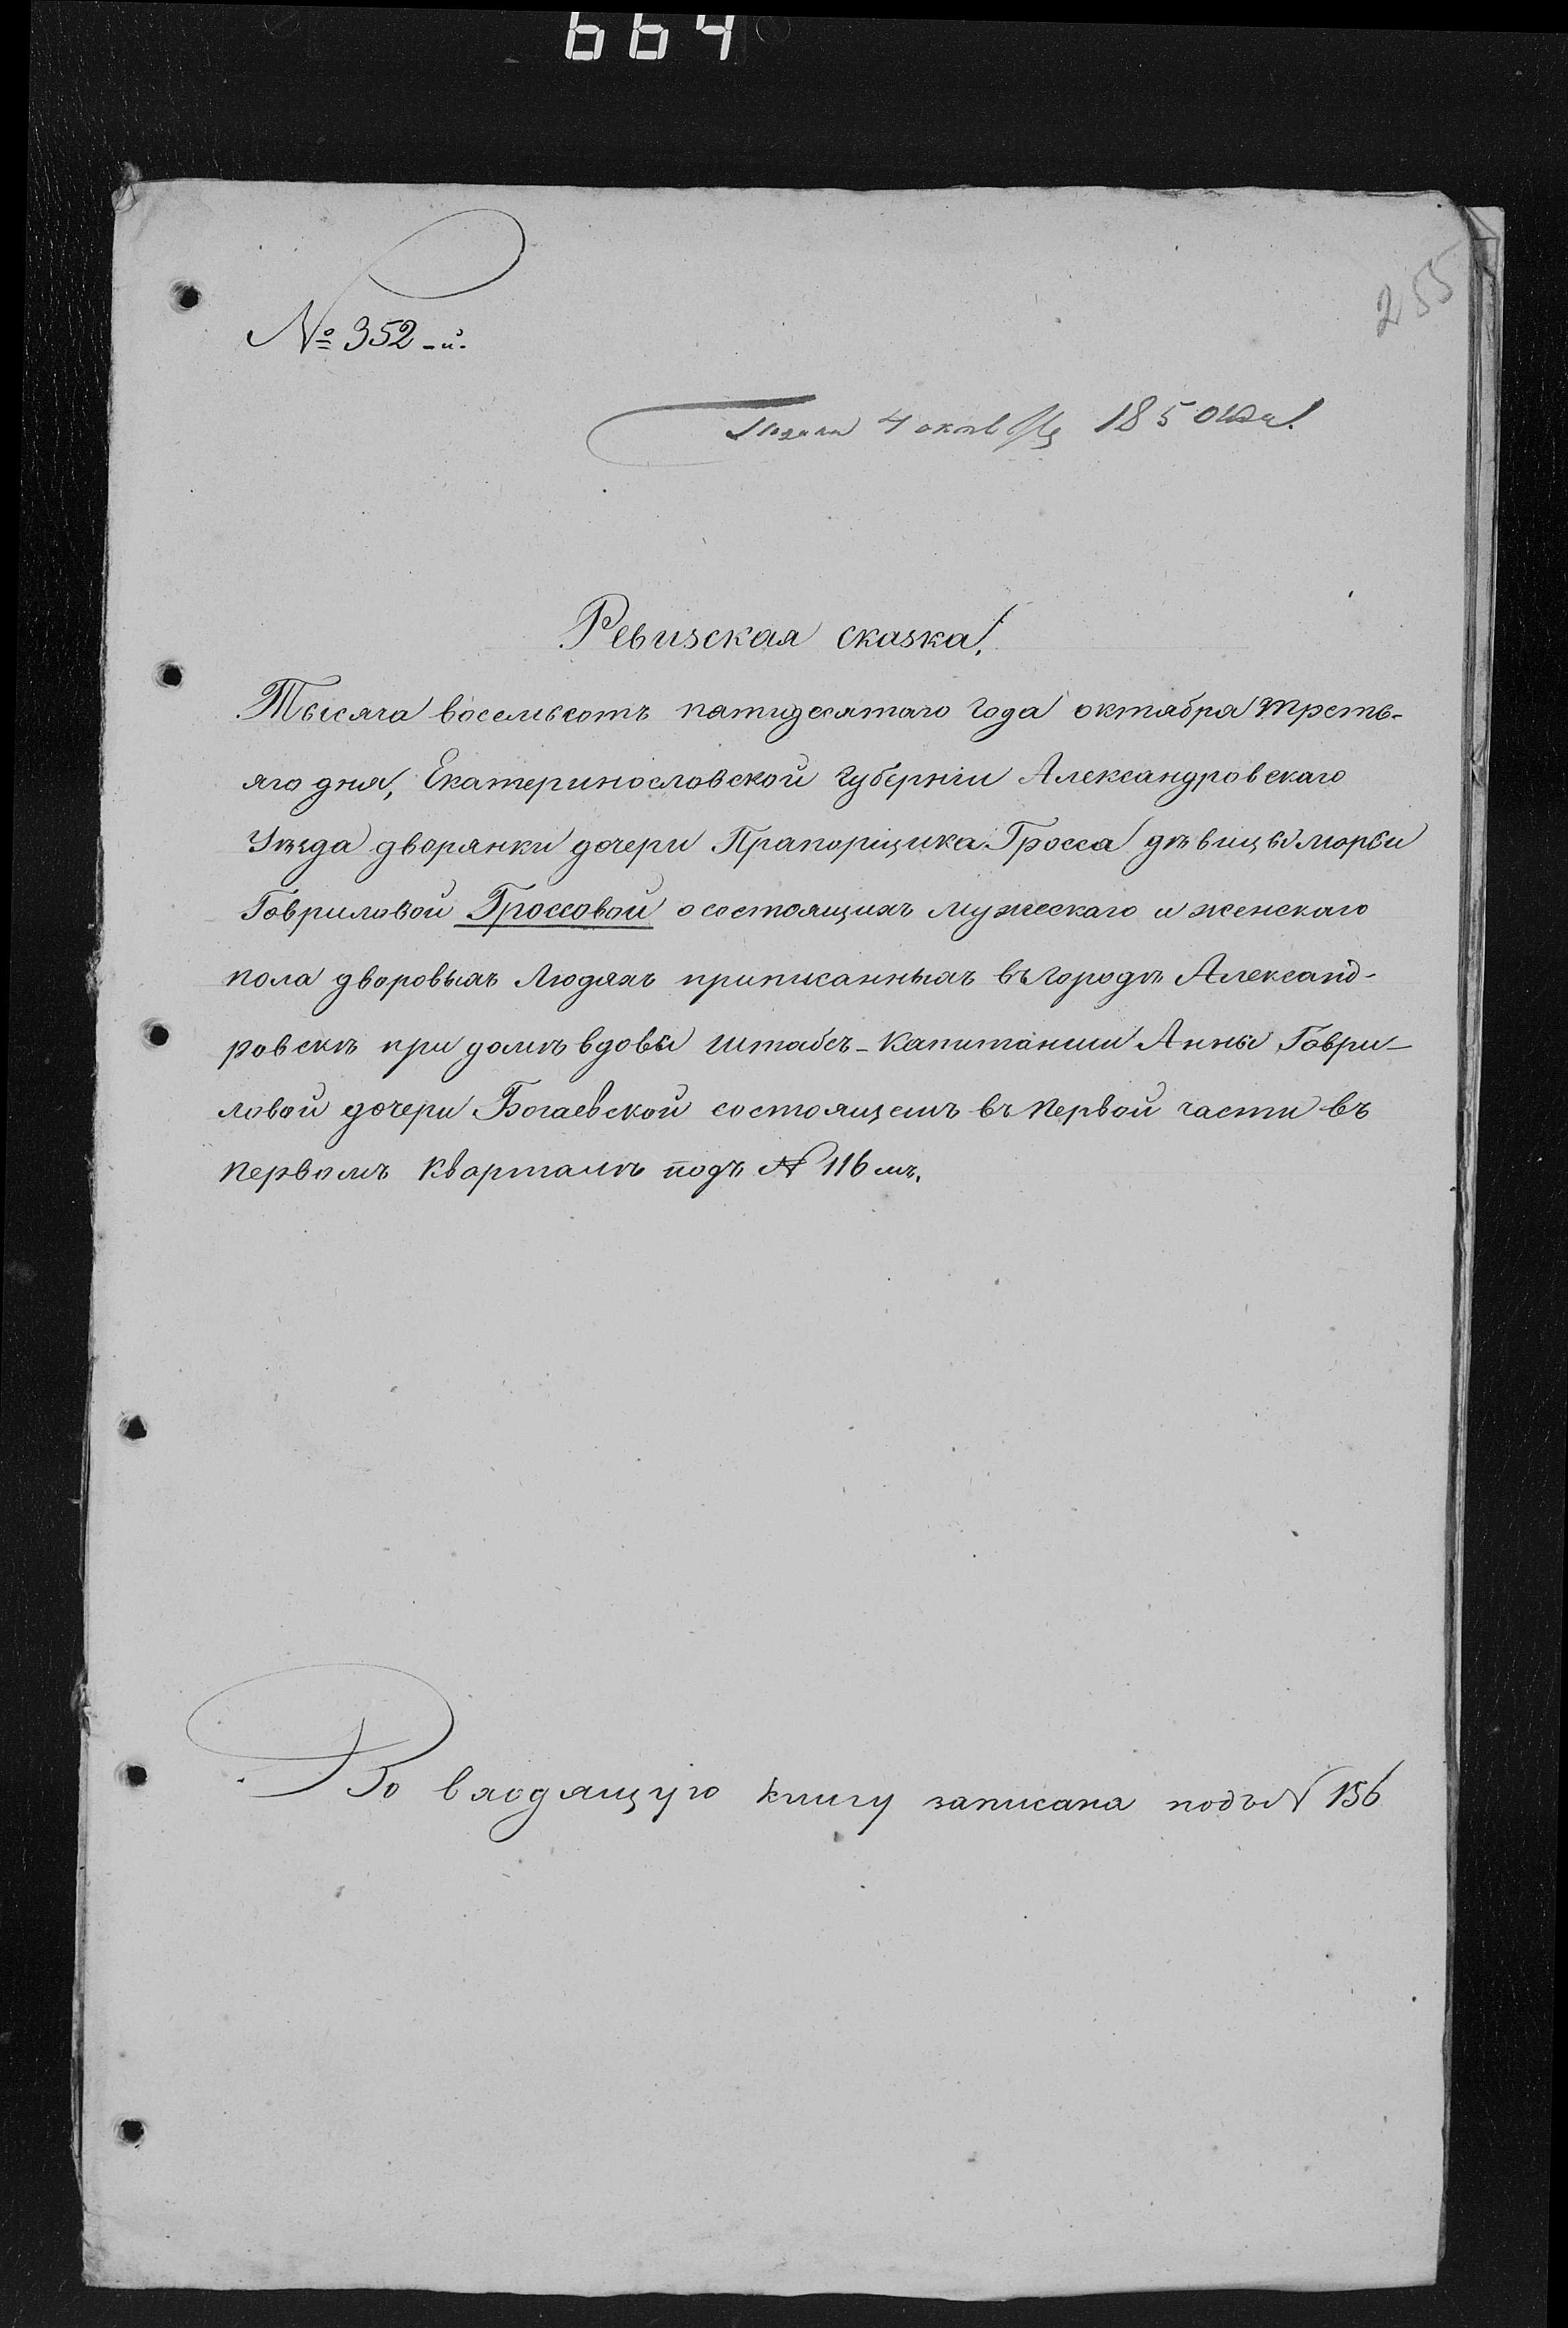 664
255
№ 352-й.
Подана 4 октября 1850 года.
Ревизская сказка.
Тысяча восемьсотъ пятидесятаго года октября треть-
яго дня, Екатеринославской Губерніи Александровскаго
Уѣзда дворянки дочери Прапорщика Гросса дѣвицы Марѳы
Гавриловой Гроссовой о состоящихъ мужескаго и женскаго
пола дворовыхъ людяхъ приписанныхъ въ городѣ Александ-
ровскѣ при домѣ вдовы Штабсъ-Капитанши Анны Гаври-
ловой дочери Богаевской состоящемъ въ первой части въ
первомъ кварталѣ подъ № 116 мъ.
Во входящую книгу записана подъ № 156